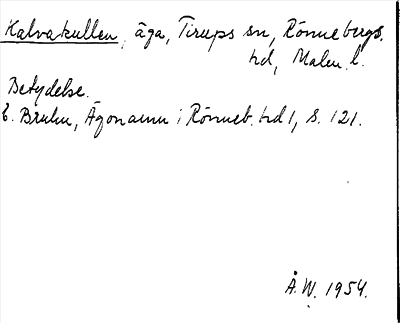 Kalvakullen, äga, Tirups sn, Rönnebergs
hd, Malm. l.
Betydelse.
E. Bruhn, Ägonamn i Rönneb. hd 1, s. 121.
Å. W. 1954.